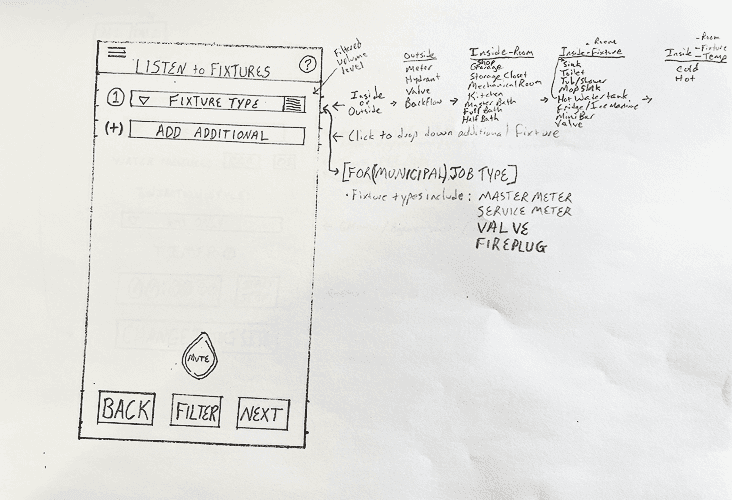 ?
LISTEN to FIXTURES
1 FIXTURE TYPE
(+) ADD ADDITIONAL
MUTE
BACK FILTER NEXT
Filtered
Volume
level
Inside
or
Outside
Outside
Meter
Hydrant
Valve
Backflow
Inside-Room
Shop
Garage
Storage Closet
Mechanical Room
Kitchen
Master Bath
Full Bath
Half Bath
- Room
Inside-Fixture
Sink
Toilet
Tub/Shower
Mop Sink
Hot Water tank
Fridge/Ice Machine
Mini Bar
Valve
- Room
- Fixture
Inside-Temp
Cold
Hot
Click to drop down additional fixture
[FOR (MUNICIPAL) JOB TYPE]
· Fixture types include: MASTER METER
SERVICE METER
VALVE
FIREPLUG